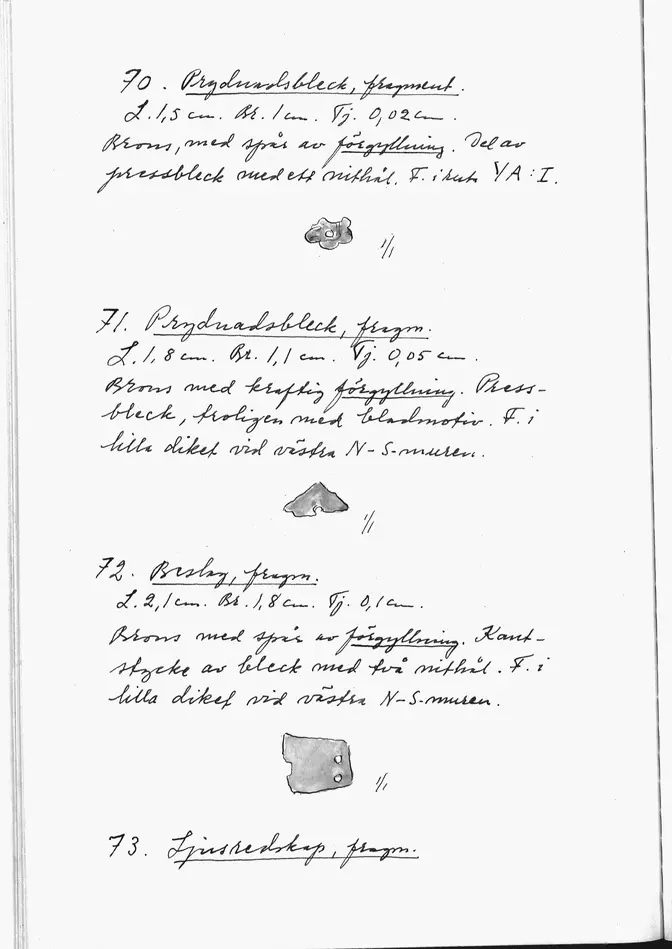 70. Prydnadsbleck, fragment.
L. 1,5 cm. Br. 1 cm. Tj. 0,02 cm.
Brons, med spår av förgyllning. Del av
pressbleck med ett nithål. F. i ruta VA:I.
1/1
71. Prydnadsbleck, fragm.
L. 1,8 cm. Br. 1,1 cm. Tj. 0,05 cm.
Brons med kraftig förgyllning. Press-
bleck, troligen med bladmotiv. F. i
lilla diket vid västra N-S-muren.
1/1
72. Beslag, fragm.
L. 2,1 cm. Br. 1,8 cm. Tj. 0,1 cm.
Brons med spår av förgyllning. Kant-
stycke av bleck med två nithål. F. i
lilla diket vid västra N-S-muren.
1/1
73. Ljusredskap, fragm.